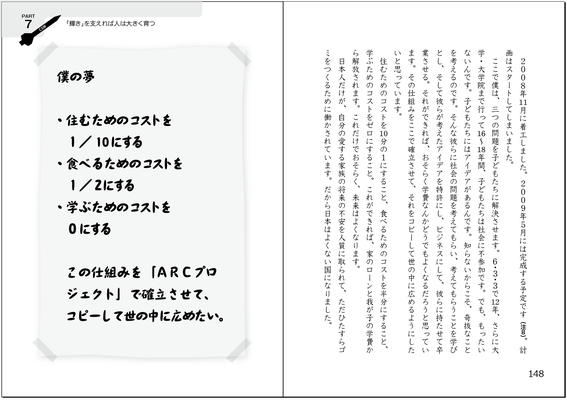 PART
7
「輝き」を支えれば人は大きく育つ
僕の夢
・住むためのコストを
1／10にする
・食べるためのコストを
1／2にする
・学ぶためのコストを
0にする
この仕組みを「ARCプロ
ジェクト」で確立させて、
コピーして世の中に広めたい。
2008年11月に着工しました。2009年5月には完成する予定です。計
画はスタートしてしまいました。
ここで僕は、三つの問題を子どもたちに解決させます。6・3・3で12年、さらに大
学・大学院まで行って16〜18年間、子どもたちは社会に不参加です。でも、もったい
ないんです。子どもたちにはアイデアがあるんです。知らないからこそ、奇抜なこと
を考えるのです。そんな彼らに社会の問題を考えてもらい、考えてもらうことを学び
とし、そして彼らが考えたアイデアを特許にし、ビジネスにして、彼らに持たせて卒
業させる。それができれば、おそらく学費なんかどうでもよくなるだろうと思ってい
ます。その仕組みをここで確立させて、それをコピーして世の中に広めるようにした
いと思っています。
住むためのコストを10分の1にすること、食べるためのコストを半分にすること、
学ぶためのコストをゼロにすること。これができれば、家のローンと我が子の学費か
ら解放されます。これだけでおそらく、未来はよくなります。
日本人だけが、自分の愛する家族の将来の不安を人質に取られて、ただひたすらゴ
ミをつくるために働かされています。だから日本はよくない国になりました。
148